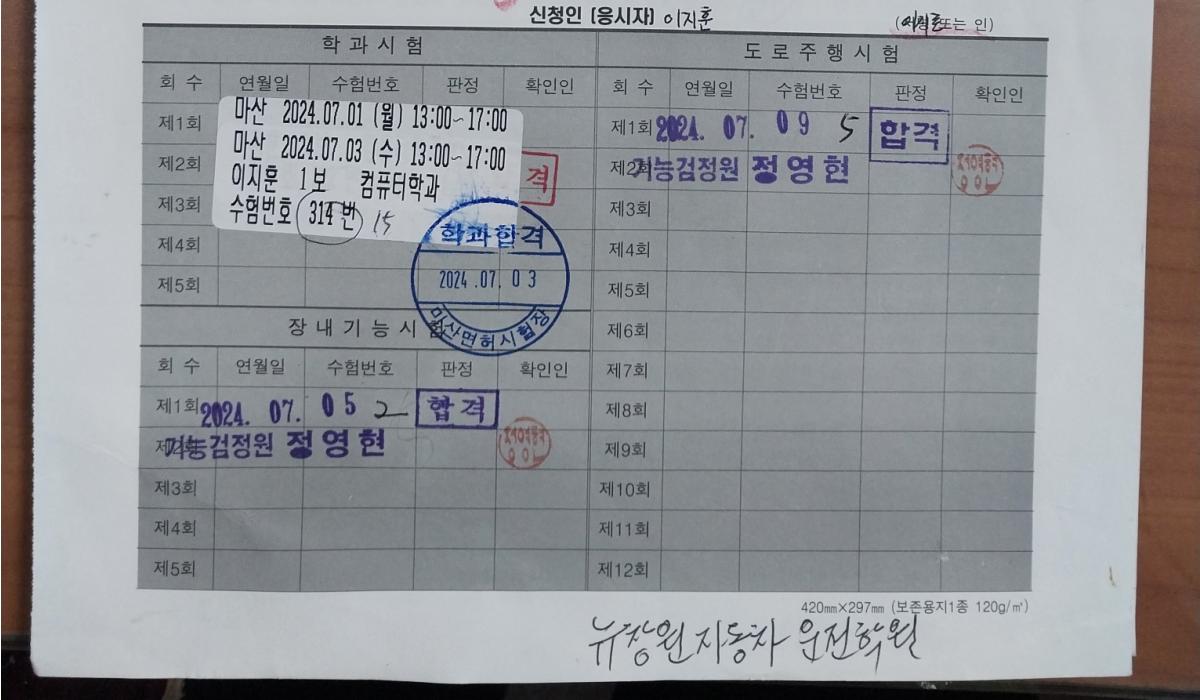 신청인 (응시자) 이지훈 (서명 또는 인)
학과시험
회 수 연월일 수험번호 판정 확인인
제1회
제2회
제3회
제4회
제5회
마산 2024.07.01 (월) 13:00~17:00
마산 2024.07.03 (수) 13:00~17:00
이지훈 1보 컴퓨터학과
수험번호 314번 15
격
학과합격
2024.07.03
마산면허시험장
장내기능시험
회 수 연월일 수험번호 판정 확인인
제1회 2024. 07. 05 2 합격
제2회 기능검정원 정영현
제3회
제4회
제5회
도로주행시험
회 수 연월일 수험번호 판정 확인인
제1회 2024. 07. 09 5 합격
제2회 기능검정원 정영현
제3회
제4회
제5회
제6회
제7회
제8회
제9회
제10회
제11회
제12회
420mm×297mm (보존용지1종 120g/㎡)
뉴창원자동차 운전학원